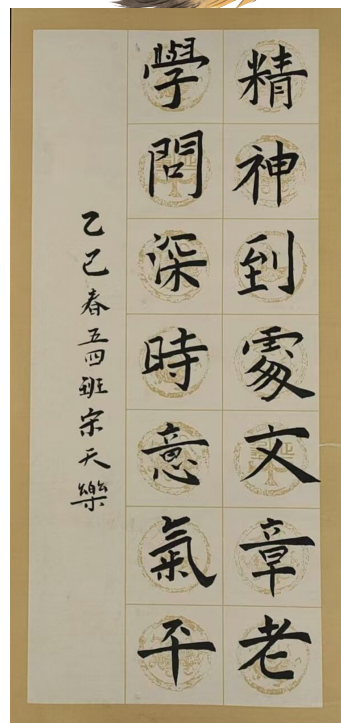 精神到處文章老
學問深時意氣平
乙巳春五四班宋天樂